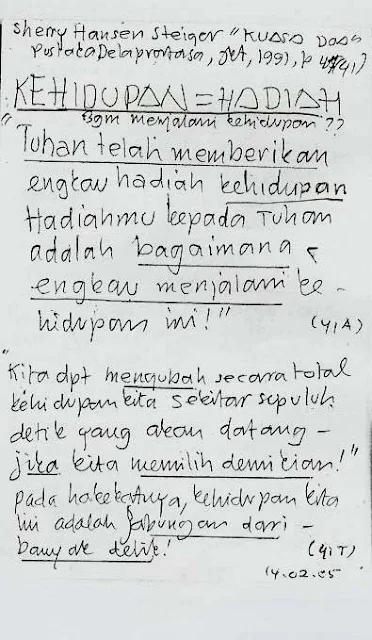 Sherry Hansen Steiger "KUASA DOA"
Pustaka Delapratasa, Jkt, 1991, p 41)
KEHIDUPAN = HADIAH
Bgm menjalani kehidupan ??
"Tuhan telah memberikan
engkau hadiah kehidupan
Hadiahmu kepada Tuhan
adalah bagaimana
engkau menjalani ke-
hidupan ini!" (41A)
"Kita dpt mengubah secara total
kehidupan kita sekitar sepuluh
detik yang akan datang -
jika kita memilih demikian!"
pada hakekatnya, kehidupan kita
ini adalah gabungan dari -
banyak detik! (41T)
14.02.05